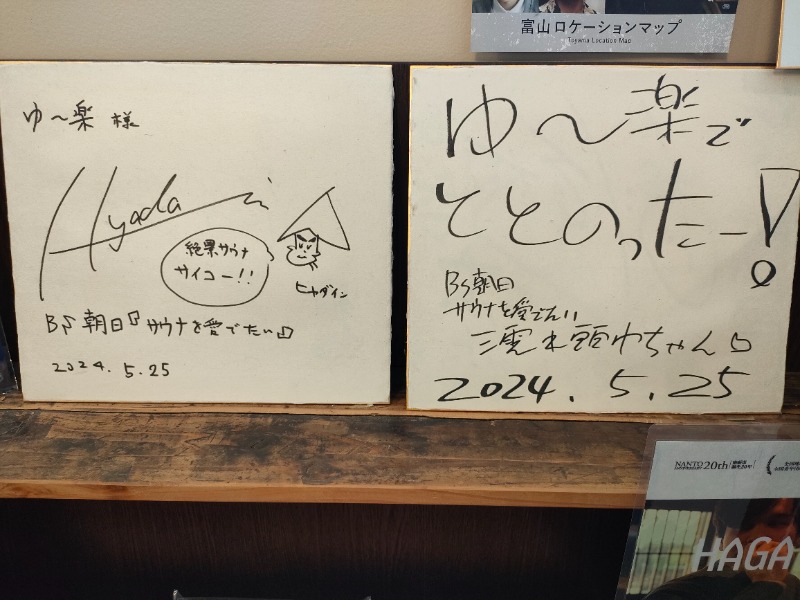 富山ロケーションマップ
Toyama Location Map
ゆ～楽 様
Hyada
絶景サウナ
サイコー!!
ヒャダイン
BS朝日『サウナを愛でたい』
2024.5.25
ゆ～楽で
ととのったー!
BS朝日
サウナを愛でたい
2024.5.25
NANTO
20th
HAGA